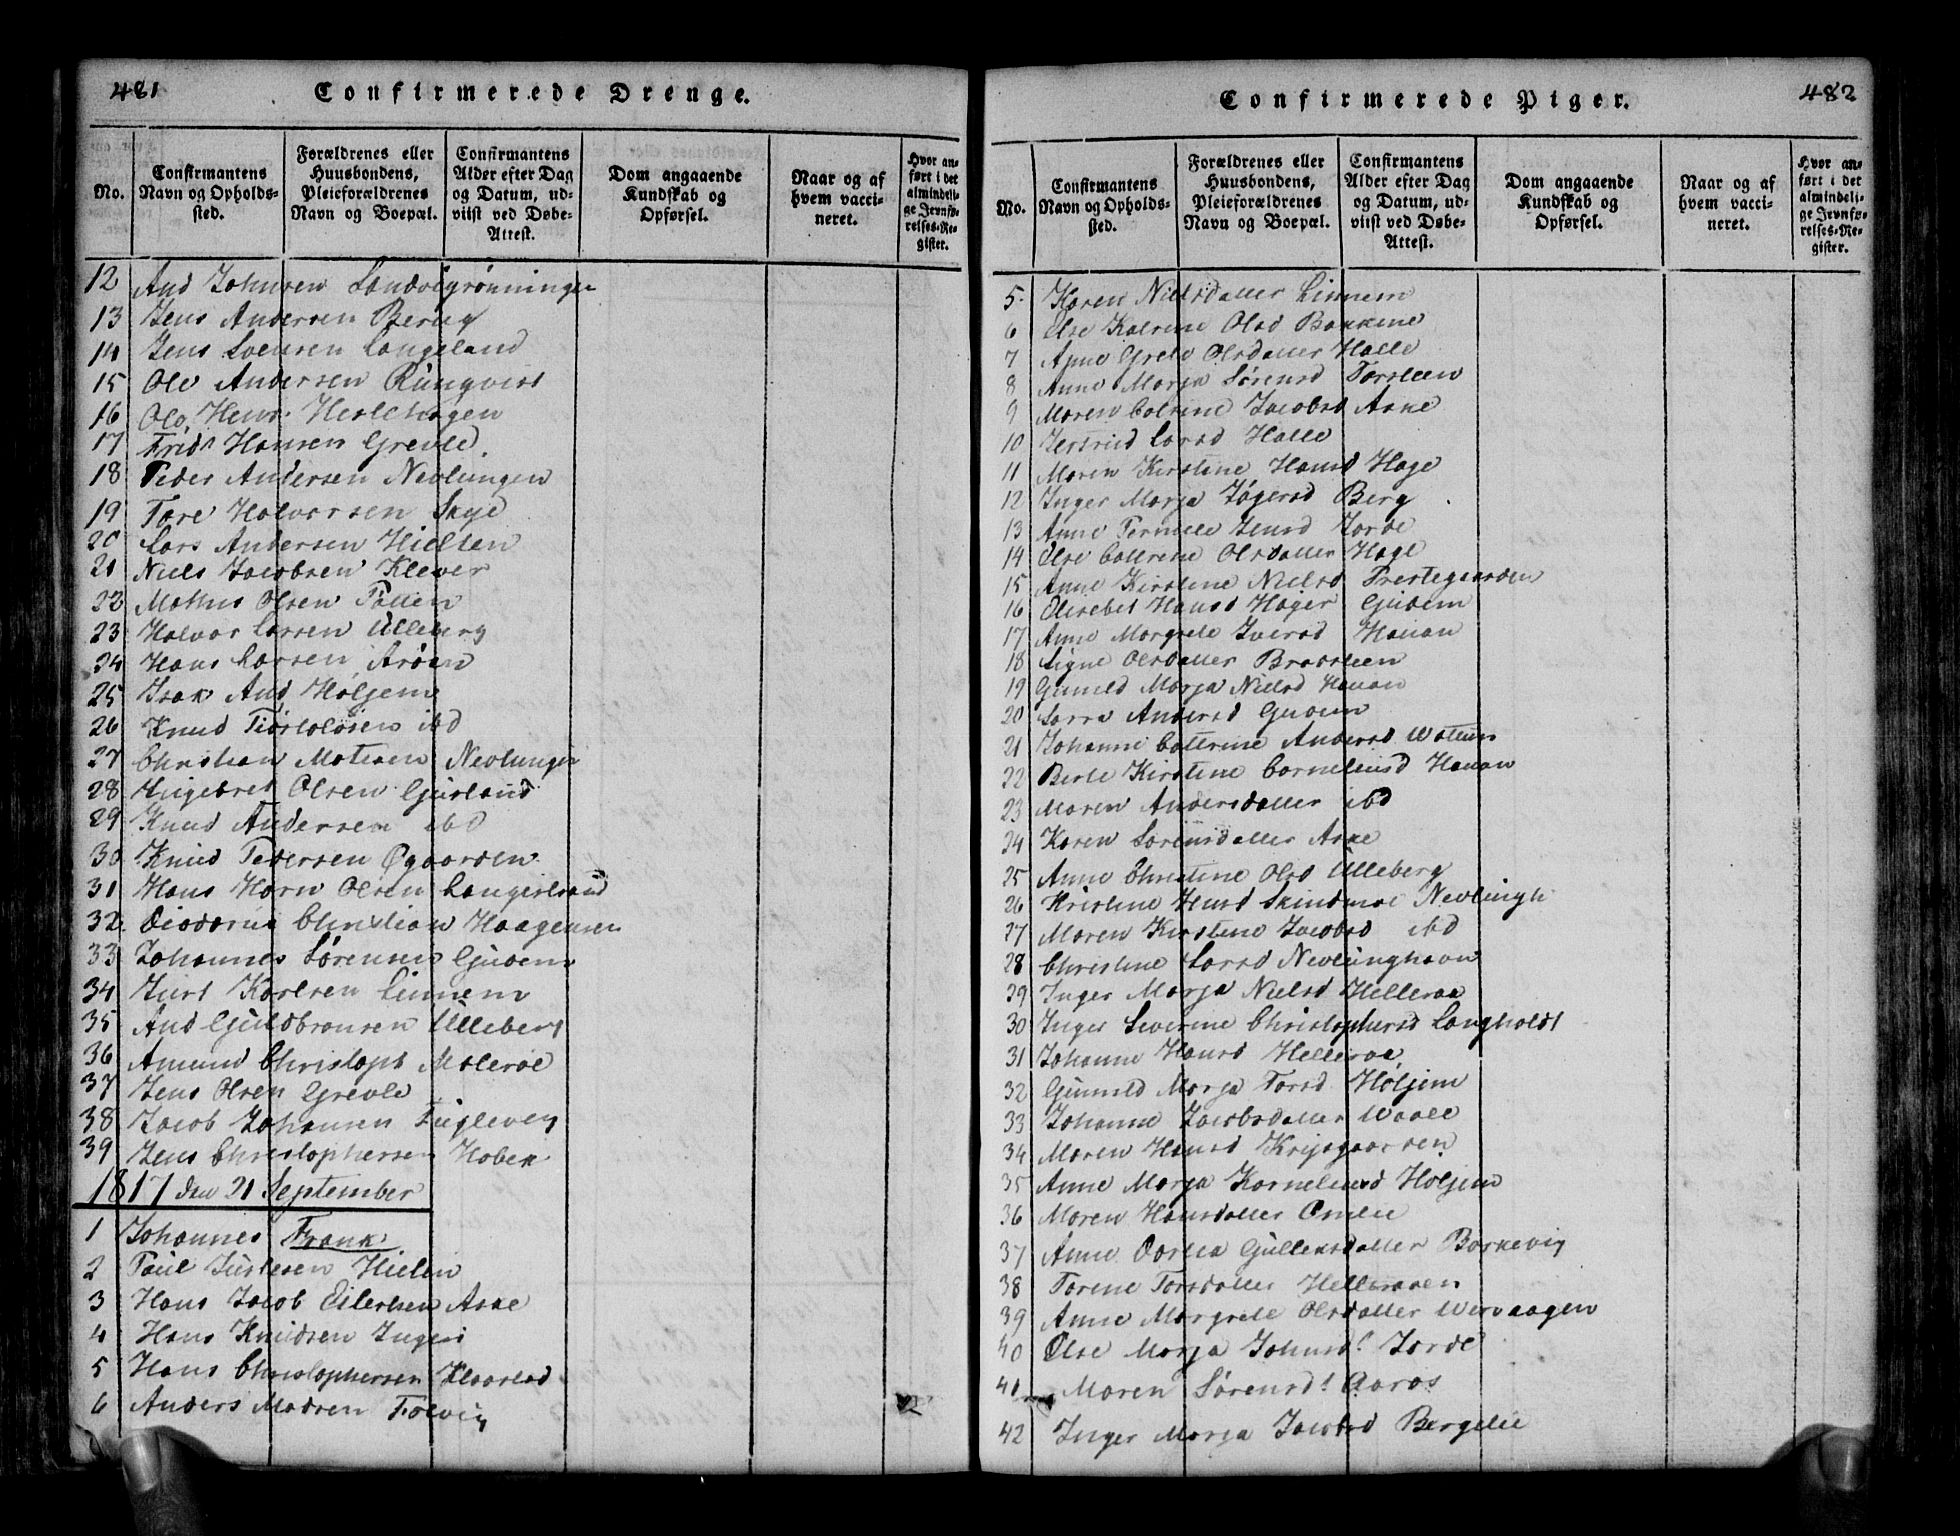 481
Confirmerede Drenge.
No.
Confirmantens Navn og Opholdssted.
Forældrenes eller Huusbondens, Pleieforældrenes Navn og Boepæl.
Confirmantens Alder efter Dag og Datum, udviist ved Døbe-Attest.
Dom angaaende Kundskab og Opførsel.
Naar og af hvem vaccineret.
Hvor anført i det almindelige Jevnførelses-Register.
12 And Johnsen
13 Jens Andersen Berug
14 Jens Soensen Langeland
15 Ole Andersen Rungvist
16 Ole Hens.
17 Frid Hansen Grevle.
18 Peder Andersen Nevlungen
19 Tore Halvorsen Skye
20 Lars Andersen Hielten
21 Niels Jacobsen Klever
22 Mathis Olsen
23 Halvor Larsen Ulleberg
24 Hans Larsen Arøen
25 Isak And Høljem
26 Knud ibd
27 Christian Matesen Nevlungen
28 Engebret Olsen Gurland
29 Knud Andersen ibd
30 Knud Pedersen Øgaarden
31 Hans Horn Olsen Langestrand
32. Diodorus Christian Haagensen
33 Johannes Sørensen Gudem
34 Just Karlsen Linnem
35 And Guldbransen Ulleberg
36 Amund Christoph Malerøe
37 Jens Olsen Grevle
38 Jacob Johansen Fuglevig
39 Jens Christophersen Hobek
1817 den 21 September
1 Johannes Frank
2 Paul Justesen Hielm
3 Hans Jacob Eilertsen Aske
4 Hans Knudsen
5 Hans Christophersen Klaastad
6 Anders Madsen Følvig
482
Confirmerede Piger.
No.
Confirmantens Navn og Opholdssted.
Forældrenes eller Huusbondens, Pleieforældrenes Navn og Boepæl.
Confirmantens Alder efter Dag og Datum, udviist ved Døbe-Attest.
Dom angaaende Kundskab og Opførsel.
Naar og af hvem vaccineret.
Hvor anført i det almindelige Jevnførelses-Register.
5. Karen Nielsdatter Linnem
6 Else Katrine Olsd Bakkene
7 Anne Grete Olsdatter Halle
8 Anne Marja Sørensd Torsteen
9 Maren Catrine Jacobsd Aske
10 Jertrud Larsd Halle
11 Maren Kirstine Hansd Hage
12 Inger Marja Jøgersd Berg
13 Anne Pernele Jensd Jorde
14 Else Cattrine Olsdatter Hage
15 Anne Kirstine Nielsd Prestegaarden
16 Elisebet Hansd Hager Gudem
17 Anne Margrete Iversd Hauan
18 Signe Olsdatter Bratsteen
19 Gunild Marja Nielsd Hauan
20 Sarra Andersd Gudem
21 Johanne Catterine Andersd
22 Berte Kirstine Corneliusd Hauan
23 Maren Andersdatter ibd
24 Karen Sørensdatter Aske
25 Anne Christine Olsd Ulleberg
26 Kristine Hansd Skindmoe Nevlungh
27 Maren Kirstine Jacobsd ibd
28 Christine Larsd Nevlunghavn
29 Inger Marja Nielsd Helleraa
30 Inger Severine Christophersd Langholdt
31 Johanne Hansd Helleraa
32 Gunild Marja Torsd Høljem
33 Johanne Jacobsdatter Waale
34 Maren Hansd
35 Anne Marja Korneliusd Holjem
36 Maren Hansdatter Omlie
37 Anne Dortea Gullensdatter Barkevig
38 Torene Torsdatter Helleraaen
39 Anne Margrete Olsdatter Wervaagen
40 Else Marja Johnsd. Jorde
41 Maren Sørensd. Aaros
42 Inger Marja Jacobsd Bergelie